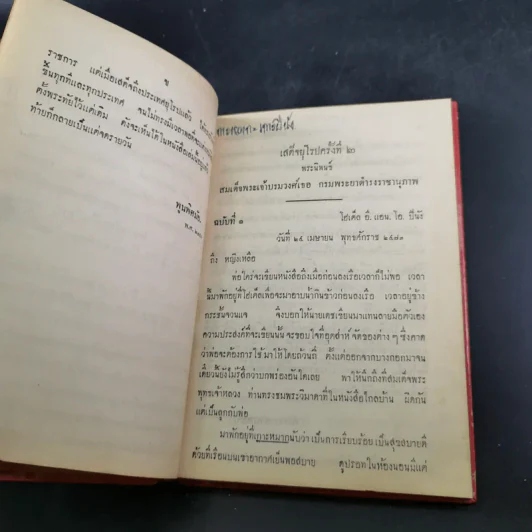 ข
ราชการ แต่เมื่อเสด็จถึงประเทศยุโรปแล้ว
ขึ้นทุกทีและทุกประเทศ จนไม่ทรงมีเวลาพอที่จะ
ตั้งพระทัยไว้แต่เดิม ดังจะเห็นได้ในหนังสือเล่มนี้
ท้ายก็กลายเป็นแต่จดรายวัน
พูนพิศมัย
เสด็จยุโรปครั้งที่ ๒
พระนิพนธ์
สมเด็จพระเจ้าบรมวงศ์เธอ กรมพระยาดำรงราชานุภาพ
ฉบับที่ ๑
โฮเต็ล อี. แอน, โอ. ปีนัง
วันที่ ๒๔ เมษายน พุทธศักราช ๒๔๗๓
ถึง หญิงเหลือ
พ่อใคร่จะเขียนหนังสือถึงเมื่อก่อนลงเรือเวลาก็ไม่พอ เวลา
นี้มาพักอยู่ที่โฮเต็ลเพื่อจะมาอาบน้ำกินข้าวก่อนลงเรือ เวลาอยู่ข้าง
กระชั้นจวนแจ จึงบอกให้นายเดชเขียนมาแทนลายมือตัวเอง
ความประสงค์ที่จะเขียนนั้น จะขอบใจที่อุตส่าห์จัดของต่าง ๆ ซึ่งคาด
ว่าพ่อจะต้องการใช้ มาให้โดยถ้วนถี่ ตั้งแต่ออกจากบางกอกมาจน
เดี๋ยวนี้ยังไม่รู้สึกว่าบกพร่องอันใดเลย พาให้นึกถึงที่สมเด็จพระ
พุทธเจ้าหลวง ท่านทรงชมพระวิมาดาที่ในหนังสือไกลบ้าน ผิดกัน
แต่เป็นลูกกับพ่อ
มาพักอยู่ที่เกาะหมากนับว่า เป็นการเรียบร้อย เป็นสุขสบายดี
ด้วยที่เรือนบนเขาอากาศเย็นพอสบาย ดูปรอทในห้องนอนมีแต่